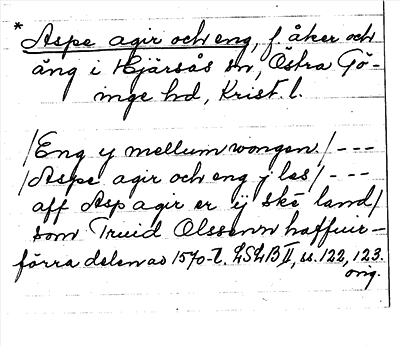 * Aspe agir och eng, f. åker och
äng i Hjärsås sn, Östra Gö-
inge hd, Krist. l.
/Eng y mellum wongen/ ---
/Aspe agir och eng j les/ ---
aff Asp agir er ij ske land/
som Truid Olssenn haffuir –
förra delen av 1570-t. LSLB II, s. 122, 123.
orig.